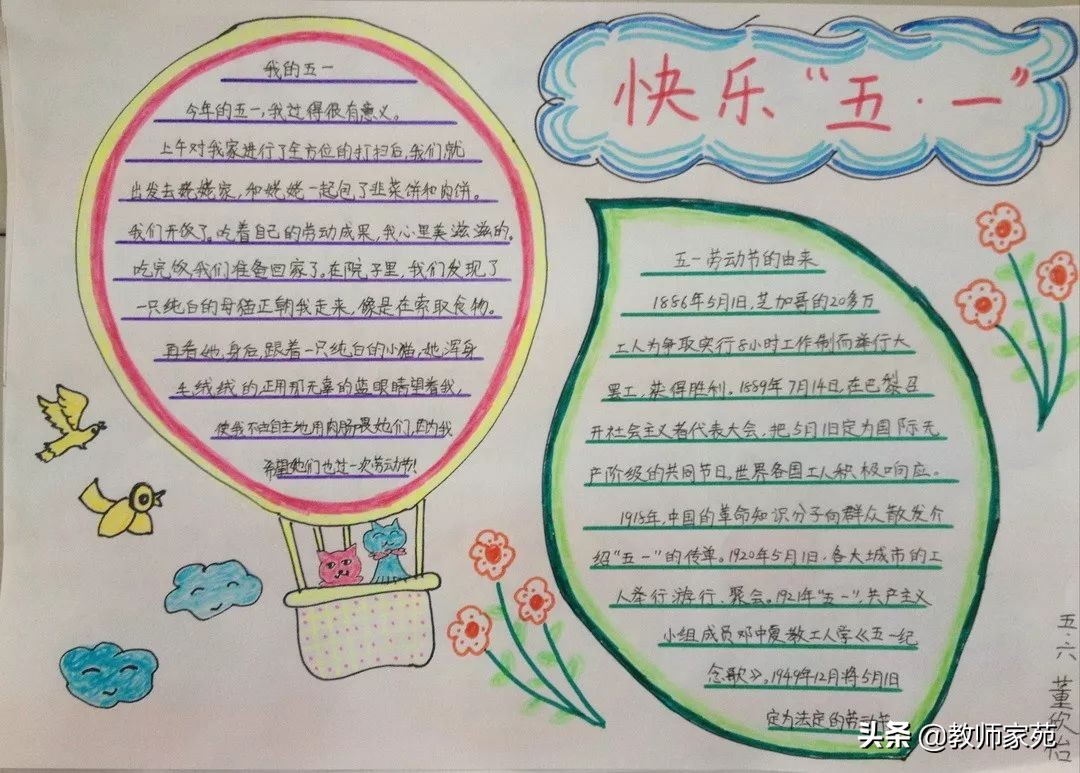 快乐“五·一”
我的五一
今年的五一,我过得很有意义。
上午对我家进行了全方位的打扫后,我们就
出发去姥姥家,和姥姥一起包了韭菜饼和肉饼。
我们开饭了。吃着自己的劳动成果,我心里美滋滋的。
吃完饭,我们准备回家了。在院子里,我们发现了
一只纯白的母猫正朝我走来,像是在索取食物。
再看她,身后跟着一只纯白的小猫,她浑身
毛绒绒的,正用那无辜的蓝眼睛望着我,
使我不由自主地用肉肠喂她们,因为我
希望她们也过一次劳动节!
五一劳动节的由来
1886年5月1日,芝加哥的20多万
工人为争取实行8小时工作制而举行大
罢工,获得胜利。1889年7月14日,在巴黎召
开社会主义者代表大会,把5月1日定为国际无
产阶级的共同节日。世界各国工人积极响应。
1918年,中国的革命知识分子向群众散发介
绍“五一”的传单。1920年5月1日,各大城市的工
人举行游行、聚会。1921年“五一”,共产主义
小组成员邓中夏教工人学《五一纪
念歌》。1949年12月将5月1日
定为法定的劳动节
五·六 董欣怡
头条 @教师家苑